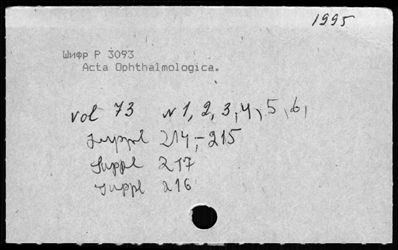 1995
Шифр Р 3093
Acta Ophthalmologica.
vol 73 N 1, 2, 3, 4, 5, 6,
Suppl 214,-215
Suppl 217
Suppl 216